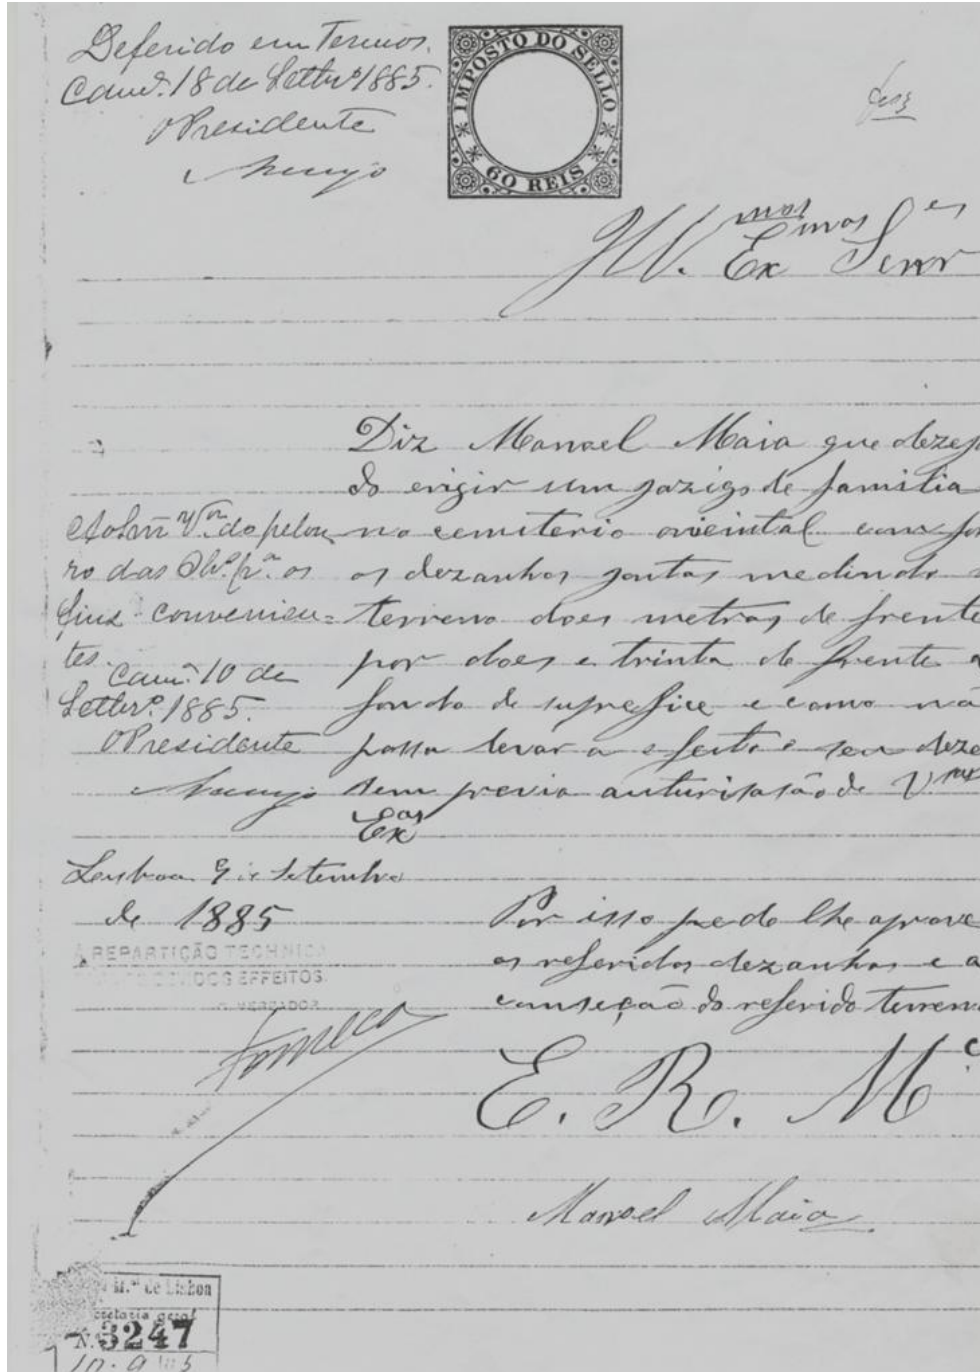 Deferido em Termos.
Cam.ª 18 de Settbrº 1885.
O Presidente
IMPOSTO DO SELLO
60 REIS
Ill.mos Ex mos Senr es
Diz Manoel Maia que dezej
do erigir um jazigo de familia
no cemiterio orieintal com
os dezanhos juntos medindo
terreno does metros de frente
por does e trinta de frente a
fundo de suprefice e como na
possa levar a efeito o seu deze
sem previa auturisasão de V.
Ex as
do pelou
ro das os
fins convenien=
tes.
Cam.ª 10 de
Settbrº 1885.
O Presidente
Lesboa 9 de Setembro
de 1885
A REPARTIÇÃO TECHNIC
DOS EFFEITOS.
VEREADOR
Fonseca
Por isso pede lhe aprove
os referidos dezanhos e a
comseção do referido terren
E. R. M.c
Manoel Maia
M.al de Lisboa
cretaria geral
N. 3247
10-9